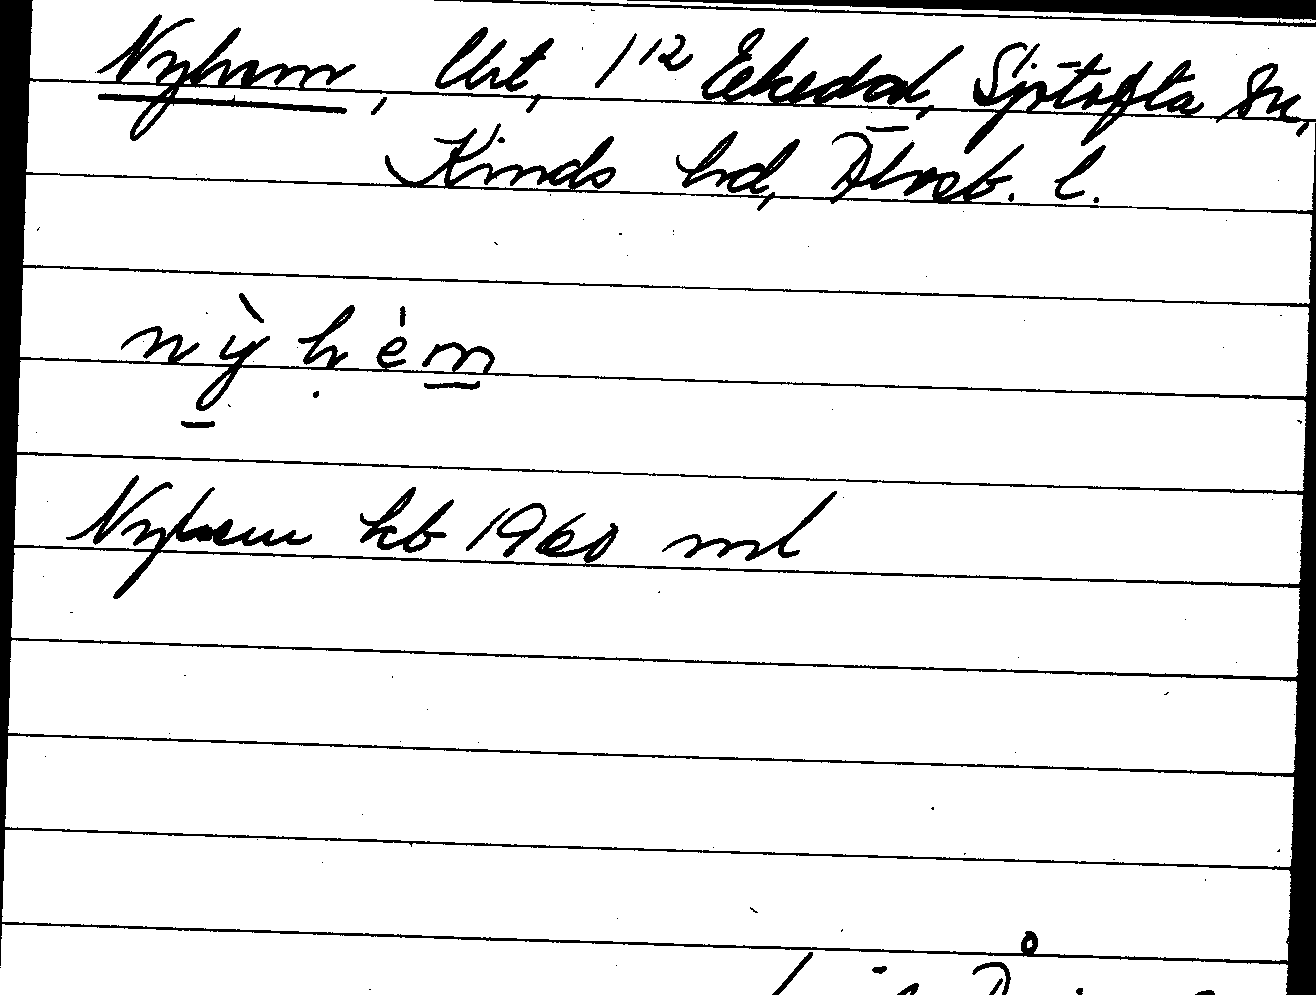 Nyhem, lht, 1¹² Ekedal, Sjötofta sn,
Kinds hd, Älvsb. l.
nỳhèm
Nyhem kb 1960 ml